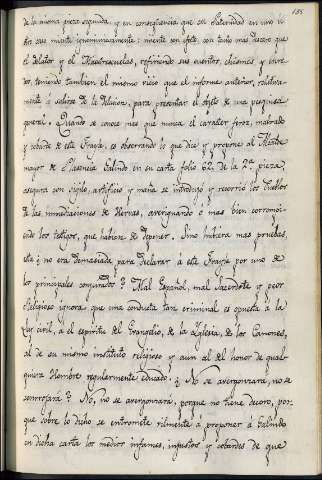 185
de la misma pieza segunda, y en consequencia que su Paternidad en uno u
otro caso miente ignominiosamente: miente con efecto, con tanto mas descaro que
el delator y el Maestreescuelas, refiriendo sus cuentos, chismes y enre-
dos, teniendo tambien el mismo vicio que el informe anterior, relativa-
mente a salirse de la Mision, para presentar el objeto de una pesquisa
general. Quando se conoce mas que nunca el caracter feroz, malvado
y cobarde de este Frayle, es observando lo que dice y propone al Alcalde
mayor de Plasencia Galindo en su carta folio 62 de la 2ª pieza,
asegura con sigilo, artificio y maña se introdujo y recorrió los Pueblos
de las inmediaciones de Hervas, averiguando o mas bien corrompi-
endo los testigos, que habian de deponer. Sino hubiera mas pruebas,
esta ¿no era demasiada para declarar a este Frayle por uno de
los principales conjurados? Mal Español, mal Sacerdote y peor
Religioso ignora que una conducta tan criminal es opuesta a la
Ley civil, a el espiritu del Evangelio, de la Iglesia, de los Canones,
al de su mismo instituto religioso y aun al del honor de qual-
quiera Hombre regularmente educado. ¿No se avergonzará, no se
sonrrojará? No, no se avergonzará, porque no tiene decoro, por-
que sobre lo dicho se entromete vilmente a proponer a Galindo
en dicha carta los medios infames, injustos y cobardes de que